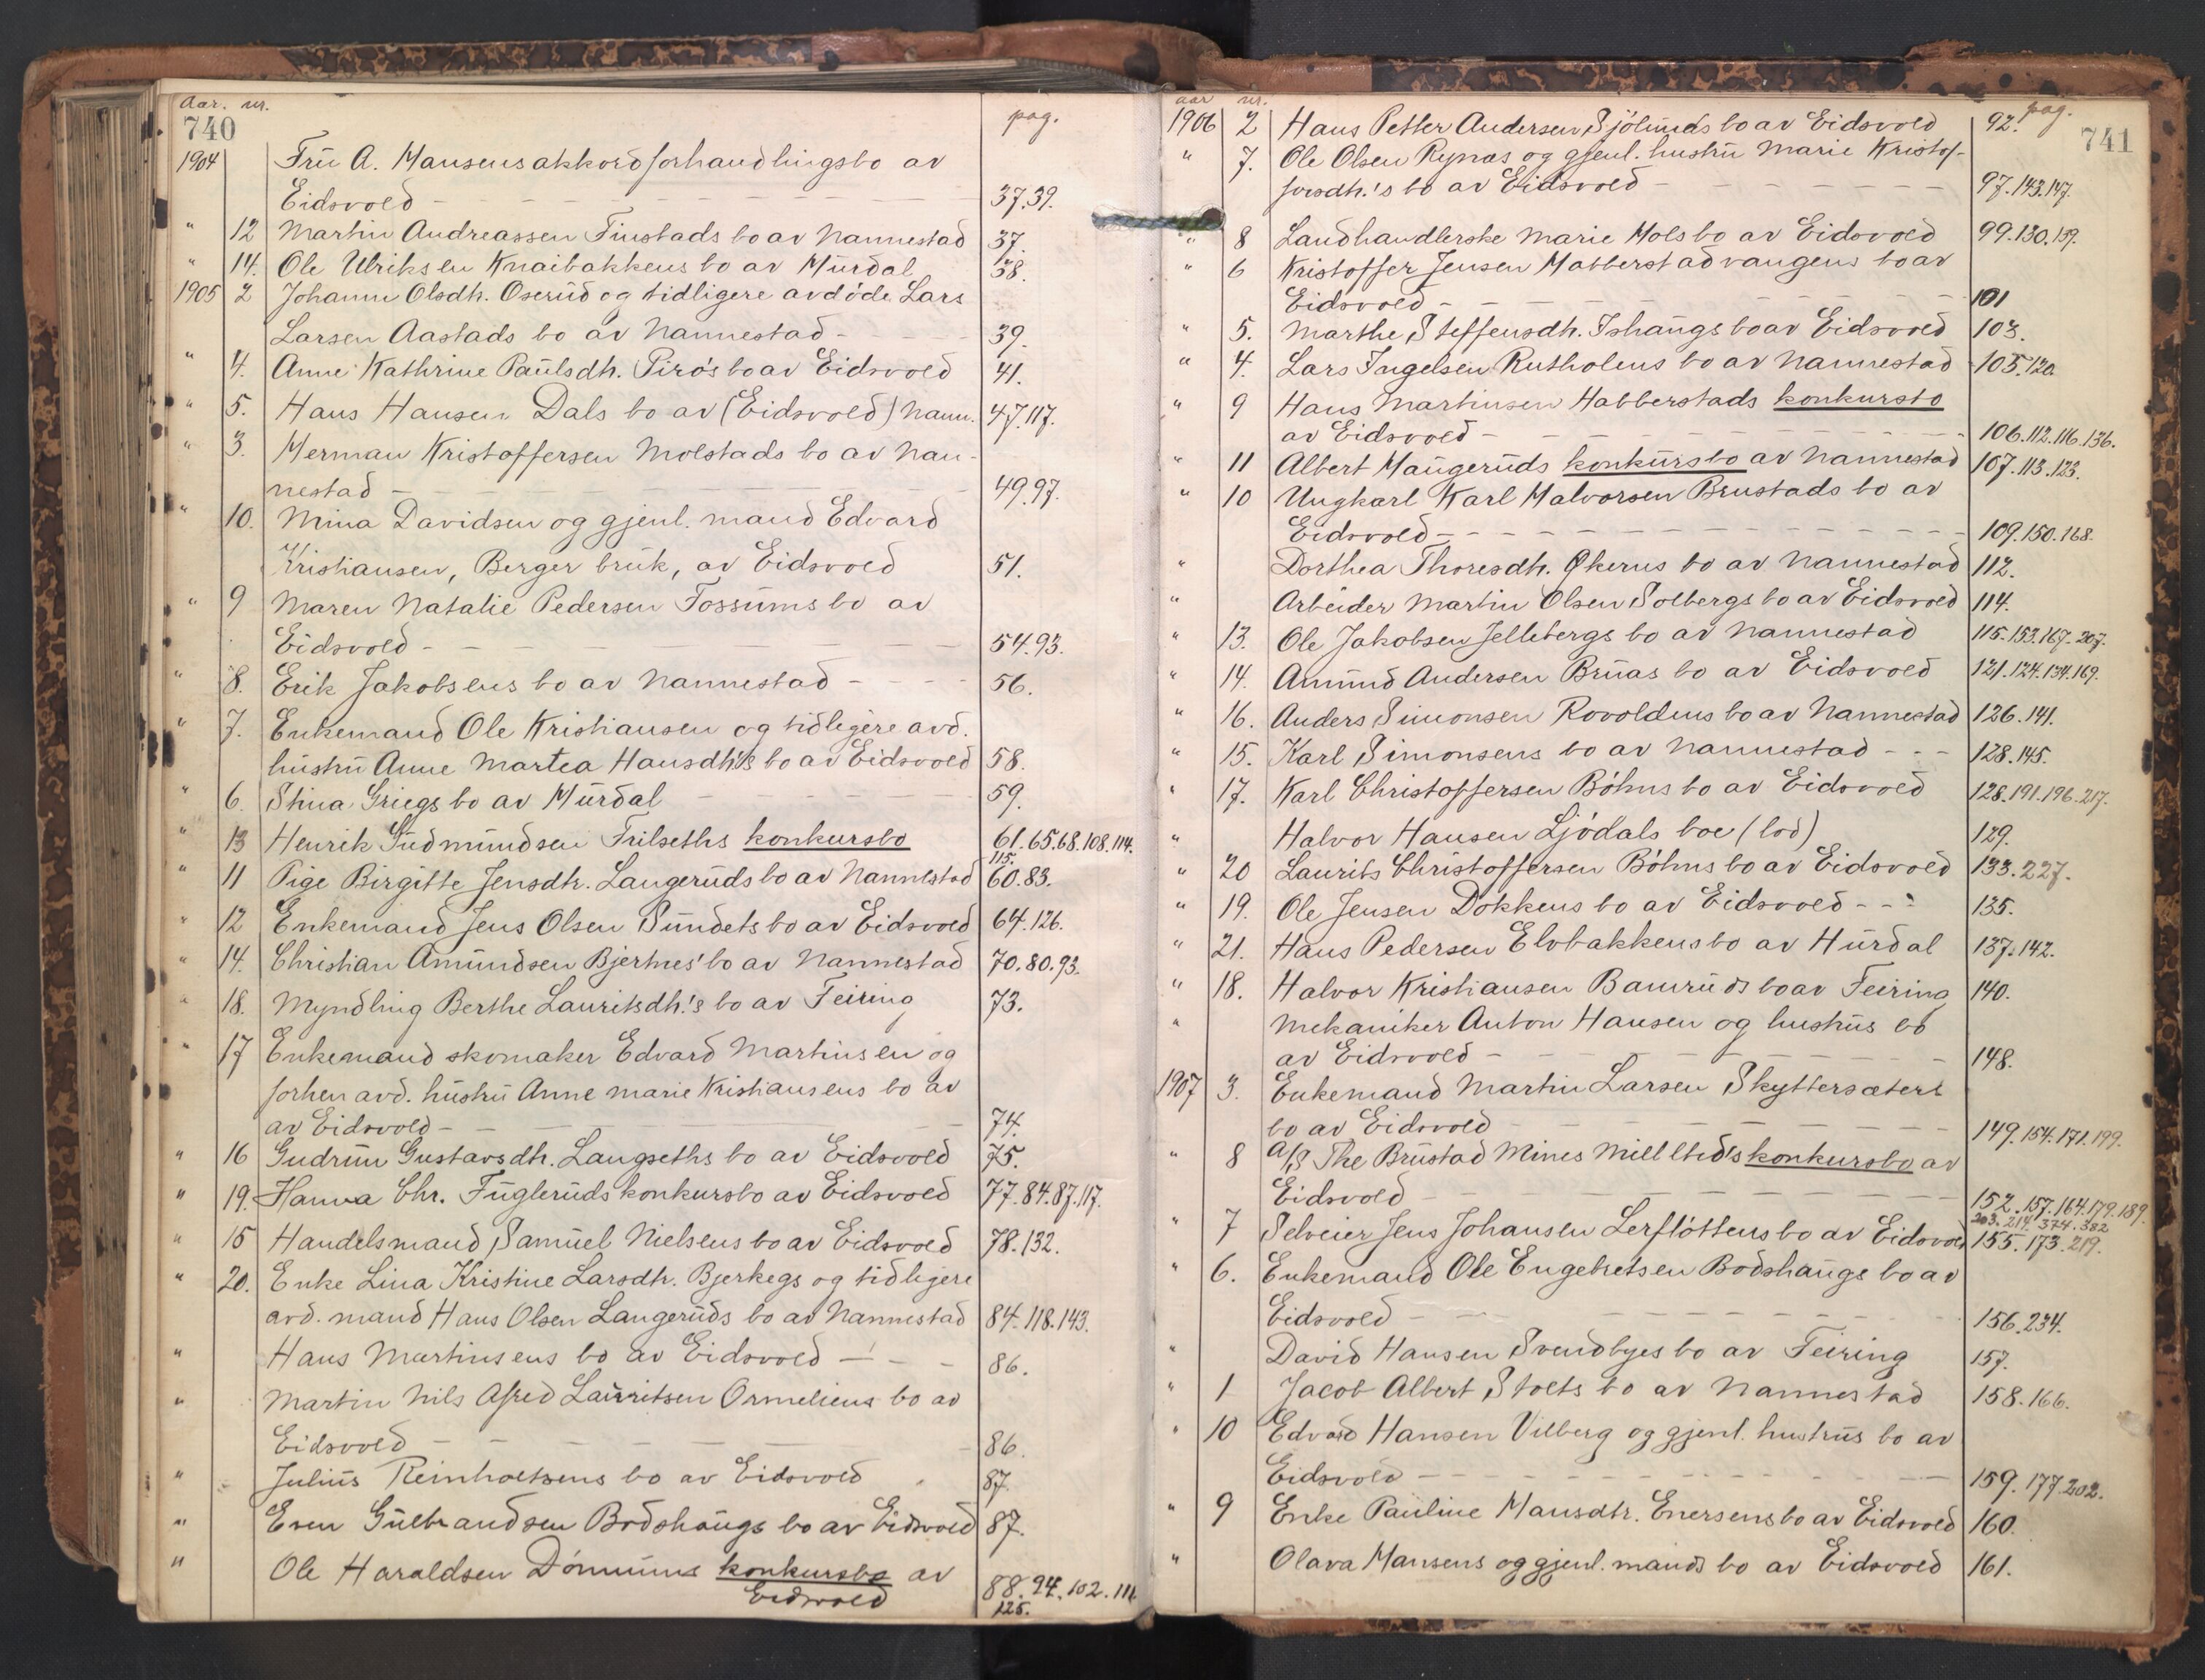 Aar. nr. pag.
740
1904 Fru A. Hansens akkordforhandlingsbo av
Eidsvold - 37.39.
" 12 Martin Andreassen Finstads bo av Nannestad 37.
" 14. Ole Ulriksen Knaibakkens bo av Hurdal 38.
1905 2 Johanne Olsdh. Oserud og tidligere avdøde Lars
Larsen Aastads bo av Nannestad - 39.
" 4. Anne Kathrine Paulsdh. Pirø's bo av Eidsvold 41.
" 5. Hans Hansen Dals bo av (Eidsvold) Nann. 47.117.
" 3. Herman Kristoffersen Molstads bo av Nan-
nestad - 49.97.
" 10. Mina Davidsen og gjenl. mand Edvard
Kristiansen, Berger bruk, av Eidsvold 51.
" 9 Maren Natalie Pedersen Fossums bo av
Eidsvold - 54.93.
" 8. Erik Jakobsens bo av Nannestad - 56.
" 7. Enkemand Ole Kristiansen og tidligere avd.
hustru Anne Martea Hansdh's bo av Eidsvold 58.
" 6. Stina Griegs bo av Hurdal - 59.
" 13 Henrik Gudmundsen Frilseths konkursbo 61.65.68.108.114.
115.
" 11 Pige Birgitte Jensdtr. Langeruds bo av Nannestad 60.83.
" 12 Enkemand Jens Olsen Sundets bo av Eidsvold 64.126.
" 14. Christian Amundsen Bjertnes' bo av Nannestad 70.80.93.
" 18. Myndling Berthe Lauritsdh.'s bo av Feiring 73.
" 17 Enkemand skomaker Edvard Martinsen og
forhen avd. hustru Anne Marie Kristiansens bo av
av Eidsvold - 74.
" 16 Gudrun Gustavsdh. Langseths bo av Eidsvold 75.
" 19. Hanna Chr. Fugleruds konkursbo av Eidsvold 77.84.87.117.
" 15 Handelsmand Samuel Nielsens bo av Eidsvold 78.132.
" 20. Enke Lina Kristine Larsdtr. Bjerkegs og tidligere
avd. mand Hans Olsen Langeruds bo av Nannestad 84.118.143.
" Hans Martinsens bo av Eidsvold - 86.
" Martin Nils Alfred Lauritsen Ormeliens bo av
Eidsvold - 86.
" Julius Reinholtsens bo av Eidsvold 87.
" Even Gulbrandsen Bodshaugs bo av Eidsvold 87.
" Ole Haraldsen Dønnums konkursbo av
Eidsvold 88.94.102.111.
125.
aar nr. pag.
741
1906 2 Hans Petter Andersen Sjølunds bo av Eidsvold 92.
" 7. Ole Olsen Rynas og gjenl. hustru Marie Kristof-
forsdh.'s bo av Eidsvold - 97.143.147.
" 8 Landhandlerske Marie Hols bo av Eidsvold 99.130.159.
" 6 Kristoffer Jensen Habberstadvangens bo av
Eidsvold - 101
" 5. Marthe Steffensdh. Ishaugs bo av Eidsvold 103.
" 4. Lars Ingelsen Rutholens bo av Nannestad 105.120.
" 9 Hans Martinsen Habberstads konkursbo
av Eidsvold - 106.112.116.136.
" 11 Albert Haugeruds konkursbo av Nannestad 107.113.123.
" 10 Ungkarl Karl Halvorsen Brustads bo av
Eidsvold - 109.150.168.
" Dorthea Thoresdh. Økerns bo av Nannestad 112.
" Arbeider Martin Olsen Solbergs bo av Eidsvold 114.
" 13. Ole Jakobsen Jellebergs bo av Nannestad 115.153.167.207.
" 14. Amund Andersen Bruas bo av Eidsvold 121.124.134.169.
" 16. Anders Simonsen Rovoldens bo av Nannestad 126.141.
" 15. Karl Simonsens bo av Nannestad - 128.145.
" 17. Karl Christoffersen Bøhns bo av Eidsvold 128.191.196.217.
" Halvor Hansen Ljødals boe (bo) 129.
" 20 Laurits Christoffersen Bøhns bo av Eidsvold 133.227.
" 19. Ole Jensen Dokkens bo av Eidsvold - 135.
" 21. Hans Pedersen Elvbakkens bo av Hurdal 137.142.
" 18. Halvor Kristiansen Bamruds bo av Feiring 140.
" Mekaniker Anton Hansen og hustrus bo
av Eidsvold - 148.
1907 3. Enkemand Martin Larsen Skyttersæters
bo av Eidsvold - 149.154.171.199.
" 8 A/S The Brustad Mines Mill Ltd's konkursbo av
Eidsvold - 152.157.164.179.189.
203.214.374.382
" 7 Selveier Jens Johansen Lerfløttens bo av Eidsvold 155.173.219.
" 6. Enkemand Ole Engebretsen Bodshaugs bo av
Eidsvold - 156.234.
" David Hansen Svendbyes bo av Feiring 157.
" 1 Jacob Albert Stolts bo av Nannestad 158.166.
" 10 Edvard Hansen Vilberg og gjenl. hustrus bo av
Eidsvold - 159.177.202.
" 9 Enke Pauline Hansdtr. Enersens bo av Eidsvold 160.
" Olava Hansens og gjenl. mands bo av Eidsvold 161.